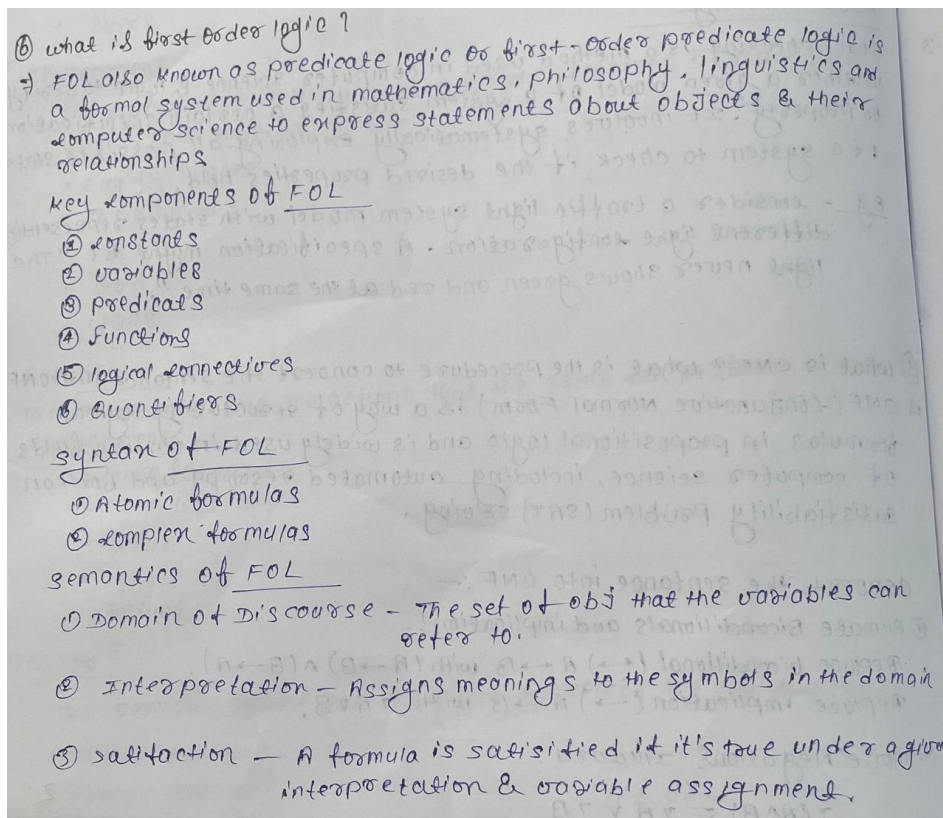 ⑥ what is first order logic ?
→ FOL also known as predicate logic or first-order predicate logic is
a formal system used in mathematics, philosophy, linguistics and
computer science to express statements about objects & their
relationships
Key components of FOL
① constants
② variables
③ predicats
④ functions
⑤ logical connectives
⑥ Quantifiers
syntax of FOL
① Atomic formulas
② complex formulas
semantics of FOL
① Domain of Discourse - The set of obj that the variables can
refer to.
② Interpretation - Assigns meanings to the symbols in the domain
③ satifaction - A formula is satisified if it's true under a given
interpretation & variable assignment.